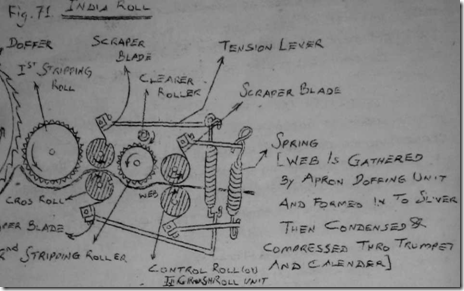 Fig. 71 INDIA ROLL
DOFFER
SCRAPER
BLADE
TENSION LEVER
1ST STRIPPING
ROLL
CLEARER
ROLLER
SCRAPER BLADE
SPRING
[WEB IS GATHERED
By APRON DOFFING UNIT
AND FORMED IN TO SLIVER
THEN CONDENSED &
COMPRESSED THRO TRUMPET
AND CALENDER]
CROS ROLL
WEB
PER BLADE
2nd STRIPPING ROLLER
CONTROL ROLL (OR)
CRUSH ROLL UNIT